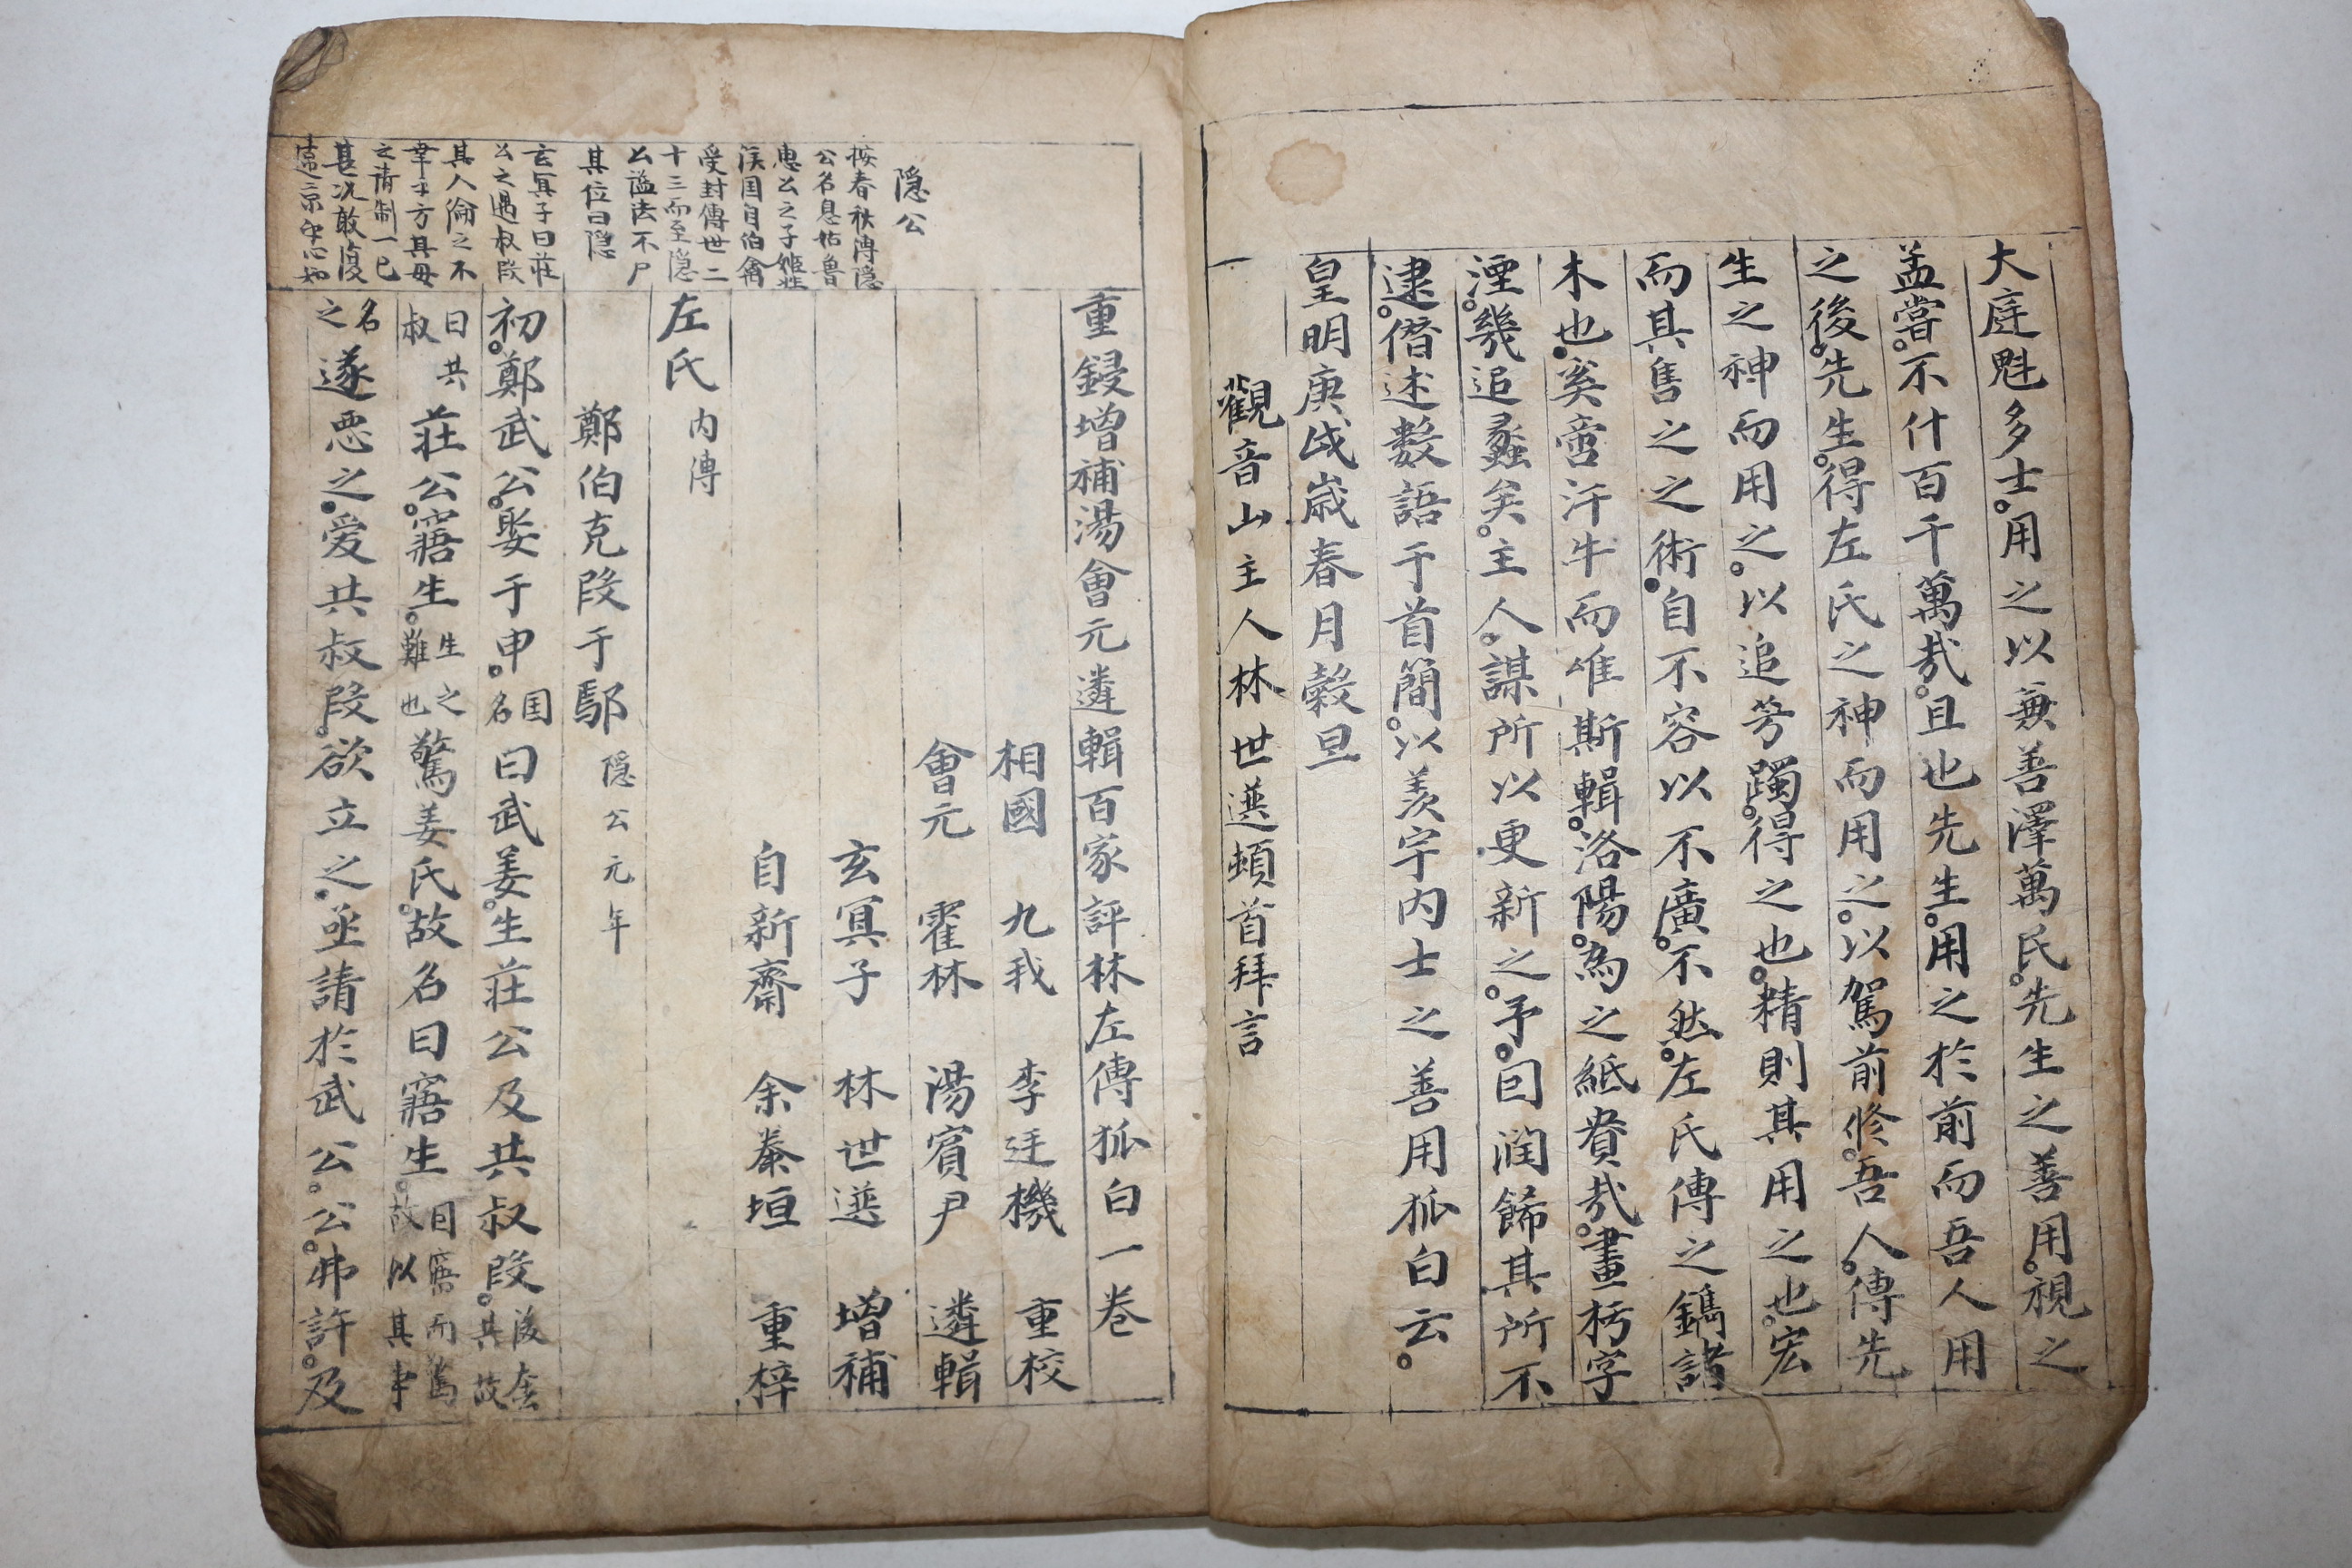 大庭魁多士用之以無善澤萬民先生之善用視之
孟嘗不什百千萬㢤且也先生用之於前而吾人用
之後先生得左氏之神而用之以駕前修吾人傳先
生之神而用之以追芳躅得之也精則其用之也宏
而其售之之術自不容以不廣不然左氏傳之鐫諸
木也奚啻汗牛而唯斯輯洛陽為之紙貴㢤畫朽字
湮幾追蠡矣主人謀所以更新之予因潤餙其所不
逮僭述數語于首簡以羨宇内士之善用狐白云
皇明庚戌歲春月穀旦
觀音山主人林世選頓首拜言
重鋟增補湯會元遴輯百家評林左傳狐白一卷
相國 九我 李廷機 重校
會元 霍林 湯賓尹 遴輯
玄冥子 林世選 增補
自新齋 余秦垣 重梓
左氏 内傳
鄭伯克段于鄢 隠公元年
初鄭武公娶于申 国名 曰武姜生莊公及共叔段
曰共叔 莊公寤生 生之難也 驚姜氏故名曰寤生 曰寤而驚故以其事
名之 遂惡之爱共叔段欲立之亟請於武公公弗許及
隠公
按春秋傳隠
公名息姑魯
惠公之子姬姓
侯国自伯禽
受封傳世二
十三而至隠
公謚法不尸
其位曰隠
玄冥子曰莊
公之遇叔段
其人倫之不
幸乎方其母
之請制一已
甚况敢復